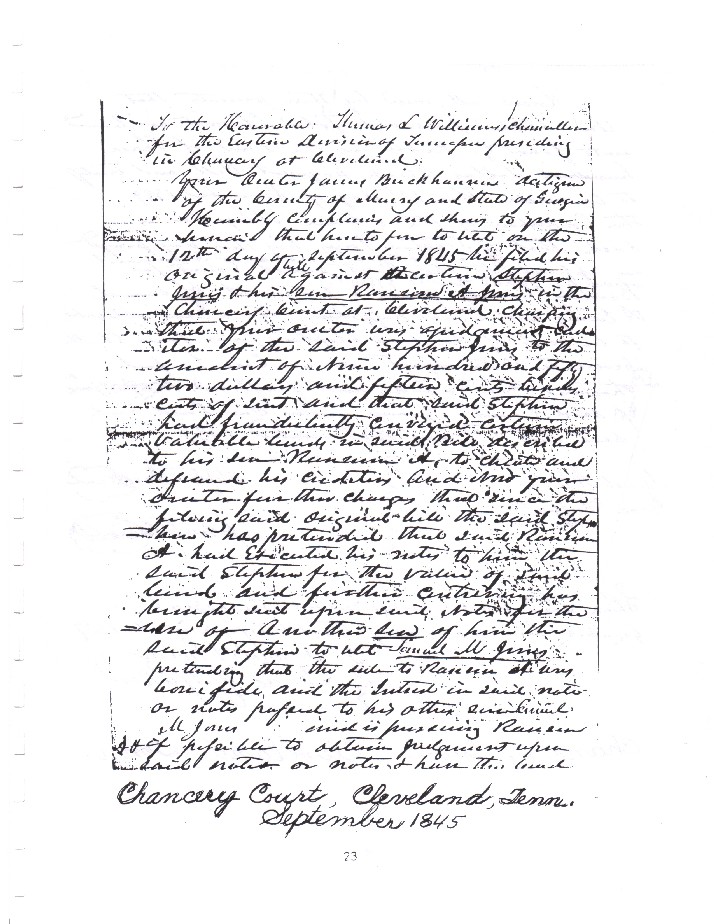 To the Honorable Thomas L Williams Chancellor
for the Eastern Division of Tennessee presiding
in Chancery at Cleveland.
Your Orator James Buckhannon a citizen
of the County of Murry and State of Georgia
Humbly complains and shews to your
that heretofore to wit on the
12th day of September 1845 he filed his
original bill against a certain Stephen
Jones & his son Ransom A Jones in the
Chancery Court at Cleveland charging
that your orator was a judgment
of the said Stephen Jones to the
amount of Nine hundred and fifty
two dollars and fifteen cents
of cost and that said Stephen
had fraudulently conveyed certain
valuable lands in said Bill described
to his son Ransom A, to cheat and
defraud his creditors And Now your
orator further charges that since the
fileing said original bill the said Steph
hen has pretended that said Ransom
A. had Executed his notes to him the
said Stephen for the value of said
land and further contriving has
brought suit upon said Notes for the
use of Another son of him the
said Stephen to wit Samuel M Jones
pretending that the sale to Ransom A was
bonifide, and the Interest in said note
or notes passed to his other son Samuel
M Jones and is pursuing Ransom
so as if possible to obtain judgment upon
said notes or notes & have the land
Chancery Court, Cleveland, Tenn.
September 1845
23